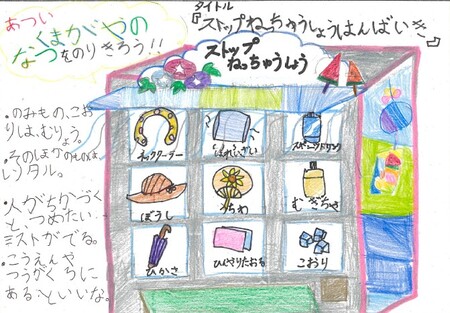 タイトル
『ストップねっちゅうしょうはんばいき』
あつい
くまがやの
なつをのりきろう!!
ストップ
ねっちゅうしょう
・のみもの、こお
りは、むりょう。
・そのほかのものは、
レンタル。
・人がちかづく
と、つめたい
ミストがでる。
・こうえんや
つうがくろに
あるといいな。
ネッククーラー
スポーツドリンク
ぼうし
うちわ
むぎちゃ
ひがさ
こおり